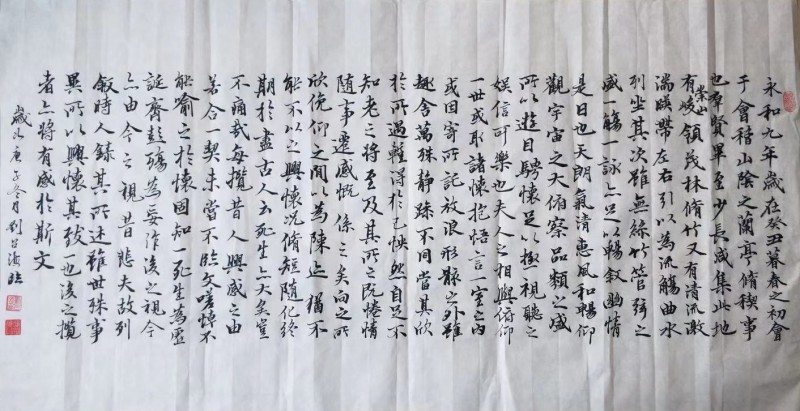 永和九年歲在癸丑暮春之初會
于會稽山陰之蘭亭脩稧事
也群賢畢至少長咸集此地
有崇山峻領茂林脩竹又有清流激
湍暎帶左右引以為流觴曲水
列坐其次雖無絲竹管弦之
盛一觴一詠亦足以暢敘幽情
是日也天朗氣清惠風和暢仰
觀宇宙之大俯察品類之盛
所以遊目騁懷足以極視聽之
娛信可樂也夫人之相與俯仰
一世或取諸懷抱悟言一室之內
或因寄所託放浪形骸之外雖
趣舍萬殊靜躁不同當其欣
於所遇暫得於己怏然自足不
知老之將至及其所之既惓情
隨事遷感慨係之矣向之所
欣俛仰之間以為陳迹猶不
能不以之興懷況脩短隨化終
期於盡古人云死生亦大矣豈
不痛哉每攬昔人興感之由
若合一契未嘗不臨文嗟悼不
能喻之於懷固知一死生為虛
誕齊彭殤為妄作後之視今
亦由今之視昔悲夫故列
敘時人錄其所述雖世殊事
異所以興懷其致一也後之攬
者亦將有感於斯文
歲次庚子冬月劉海臨